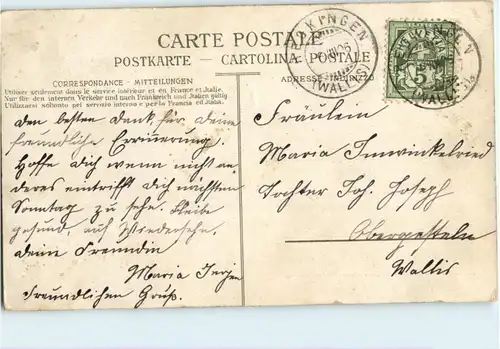 CARTE POSTALE
POSTKARTE - CARTOLINA POSTALE
CORRESPONDANCE - MITTEILUNGEN
ADRESSE
Utiliser seulement dans le service intérieur et en France et Italie.
Nur für den internen Verkehr und nach Frankreich und Italien gültig
Utilizzarsi soltanto pel servizio interno e per la Francia ed Italia.
den besten Dank für Deine
freundliche Erinnerung.
Hoffe Dich wenn nicht an-
deres eintrifft Dich nächsten
Sonntag zu sehn. bleibe
gesund auf Wiedersehn.
deine Freundin
Maria
freundlichen Gruß.
Fräulein
Maria Imwinkelried
Tochter Joh. Joseph
Obergesteln
Wallis
(WALLIS)
5